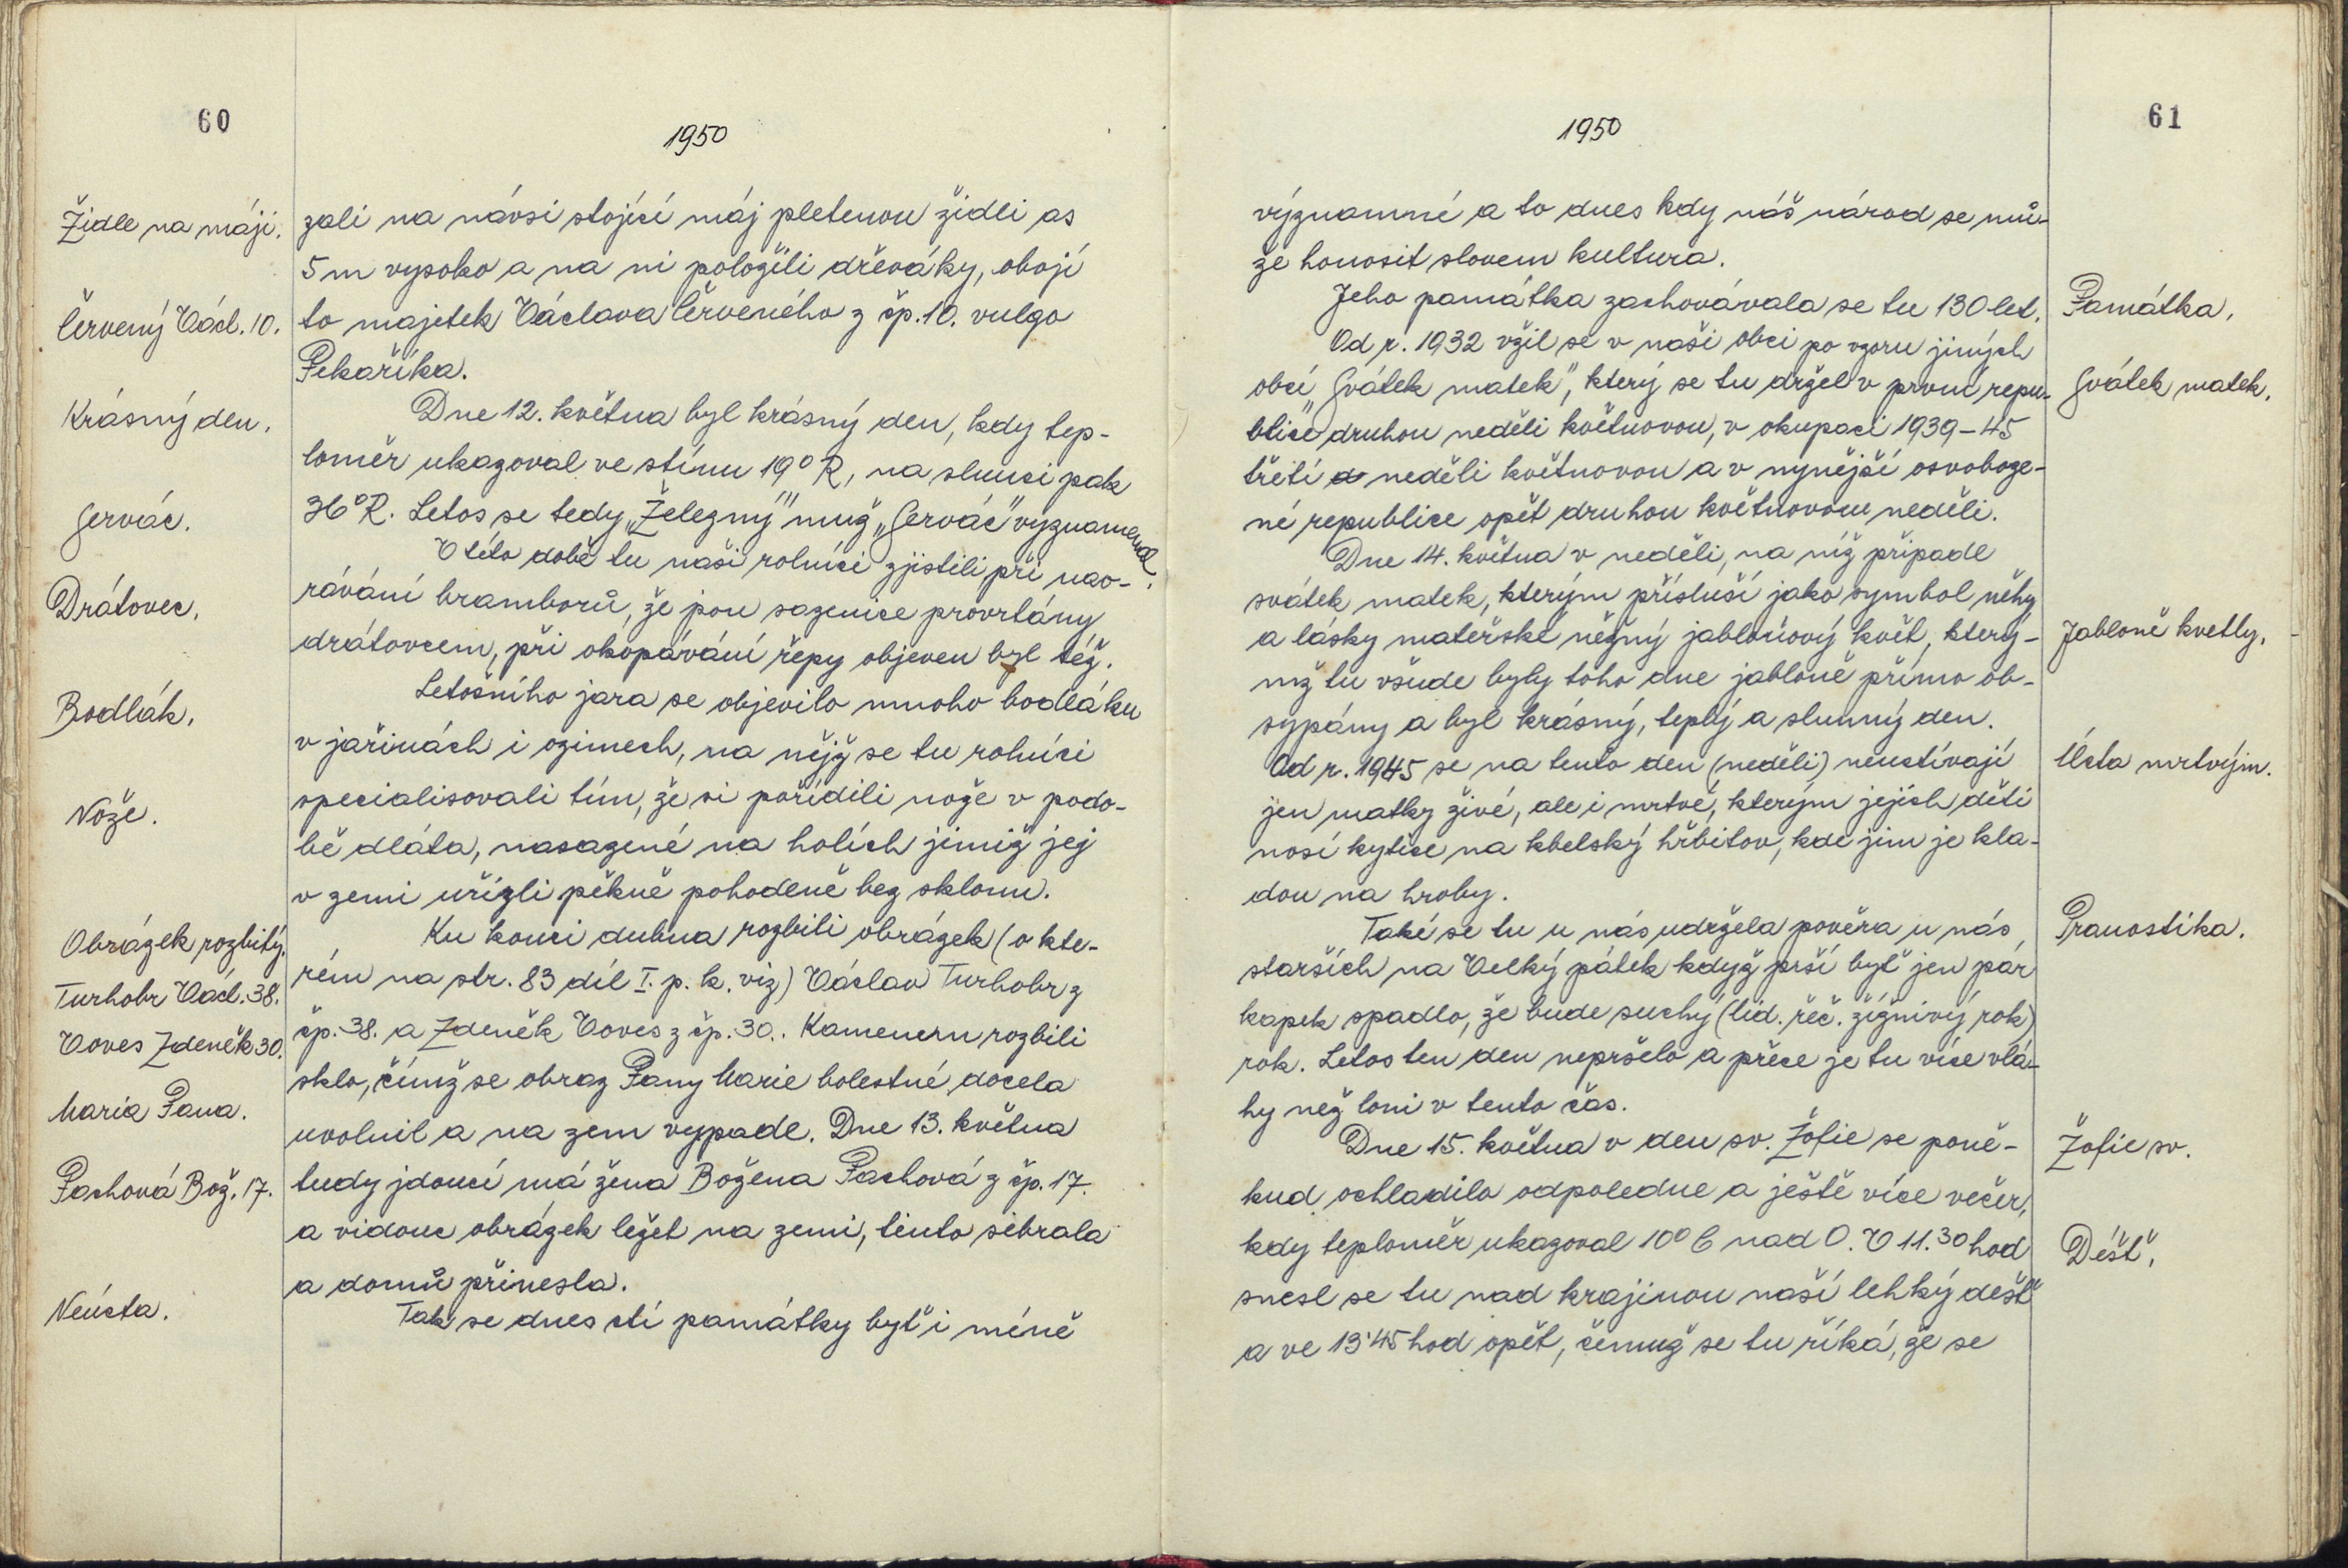 60
1950
Židle na máji.
zali na návsi stojící máj pletenou židli as
5 m vysoko a na ni položili dřeváky, obojí
Červený Václ. 10.
to majetek Václava Červeného z čp. 10. vulgo
Pekaříka.
Krásný den.
Dne 12. května byl krásný den, kdy tep-
loměr ukazoval ve stínu 19° R, na slunci pak
Gervác.
36° R. Letos se tedy „Železný" muž „Gervác" vyznamenal.
V této době tu naši rolníci zjistili při nao-
Drátovec.
rávání bramborů, že jsou sazenice provrtány
drátovcem, při okopávání řepy objeven byl též.
Letošního jara se objevilo mnoho bodláku
Bodlák.
v jařinách i ozimech, na nějž se tu rolníci
specialisovali tím, že si pořídili nože v podo-
Nože.
bě dláta, nasazené na holích jimiž jej
v zemi uřízli pěkně pohodeně bez sklonu.
Obrázek rozbitý.
Ku konci dubna rozbili obrázek (o kte-
rém na str. 83 díl I. p. k. viz) Václav Turhobr z
Turhobr Václ. 38.
čp. 38. a Zdeněk Voves z čp. 30.. Kamenem rozbili
Voves Zdeněk 30.
sklo, čímž se obraz Pany Marie bolestné docela
Maria Pana.
uvolnil a na zem vypadl. Dne 13. května
Pachová Bož. 17.
tudy jdoucí má žena Božena Pachová z čp. 17.
a vidouc obrázek ležet na zemi, tento sebrala
a domů přinesla.
Neúcta.
Tak se dnes ctí památky byť i méně
61
1950
významné a to dnes kdy náš národ se mů-
že honosit slovem kultura.
Jeho památka zachovávala se tu 130 let.
Památka.
Od r. 1932 vžil se v naši obci po vzoru jiných
obcí „Svátek matek", který se tu držel v první repu-
Svátek matek.
blice druhou neděli květnovou, v okupaci 1939-45
třetí neděli květnovou a v nynější osvoboze-
né republice opět druhou květnovou neděli.
Dne 14. května v neděli, na níž připadl
svátek matek, kterým přísluší jako symbol něhy
a lásky mateřské něžný jabloňový květ, který-
Jabloně kvetly.
mž tu všude byly toho dne jabloně přímo ob-
sypány a byl krásný, teplý a slunný den.
Od r. 1945 se na tento den (neděli) neuctívají
Úcta mrtvým.
jen matky živé, ale i mrtvé, kterým jejich děti
nosí kytice na kbelský hřbitov, kde jim je kla-
dou na hroby.
Také se tu u nás udržela pověra u nás
Pranostika.
starších na Velký pátek když prší byť jen pár
kapek spadlo, že bude suchý (lid. řeč. žíznivý rok)
rok. Letos ten den nepršelo a přece je tu více vlá-
hy než loni v tento čas.
Dne 15. května v den sv. Žofie se poně-
Žofie sv.
kud ochladilo odpoledne a ještě více večer,
kdy teploměr ukazoval 10° C nad 0. V 11.30 hod
Déšť.
snesl se tu nad krajinou naší lehký dešť
a ve 13'45 hod opět, čemuž se tu říká, že se